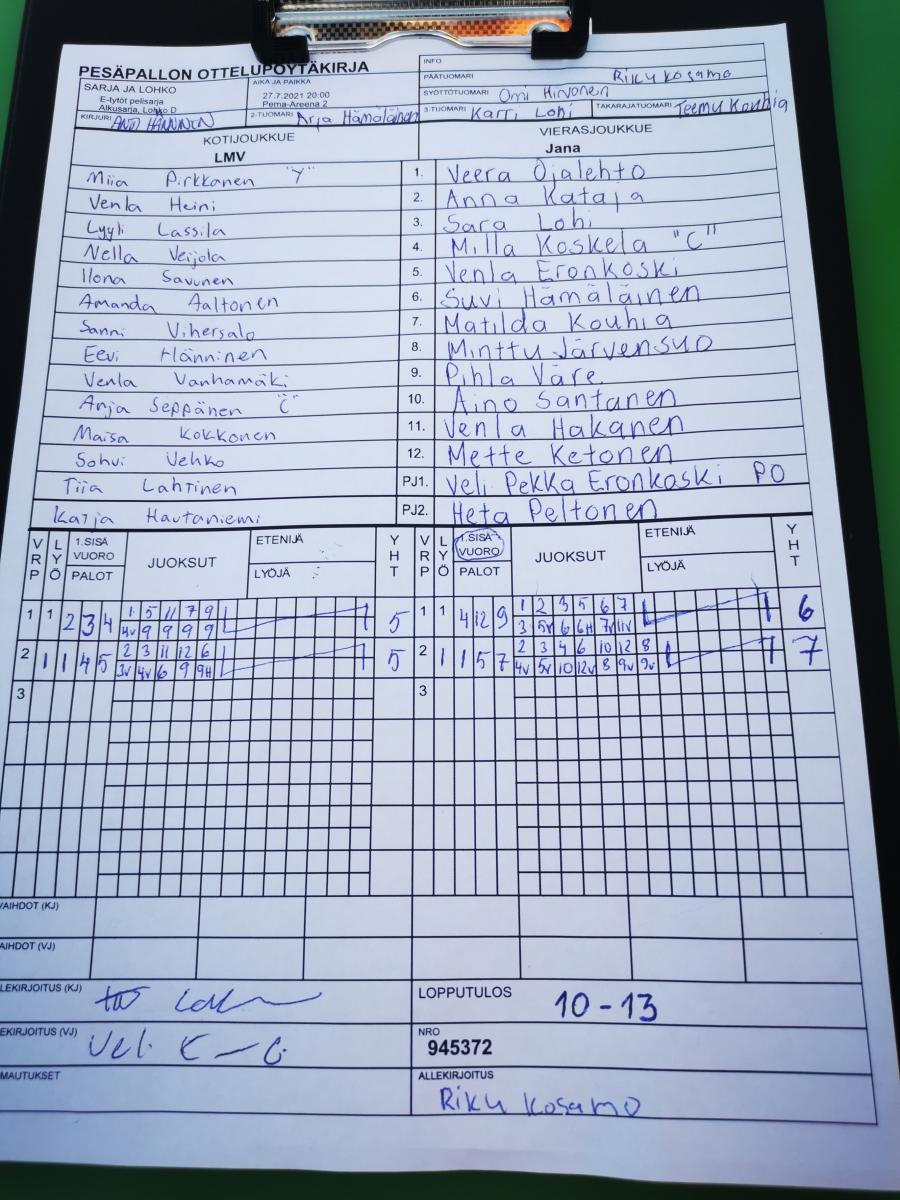 PESÄPALLON OTTELUPÖYTÄKIRJA
INFO
PÄÄTUOMARI Riku Kosamo
SARJA JA LOHKO
E-tytöt pelisarja
Alkusarja, Lohko D
AIKA JA PAIKKA
27.7.2021 20:00
Pema-Areena 2
SYÖTTÖTUOMARI Omi Hirvonen
KIRJURI HÄNNINEN
2-TUOMARI Arja Hämäläinen
3-TUOMARI Karri Lohi
TAKARAJATUOMARI Teemu Kouhia
KOTIJOUKKUE
LMV
VIERASJOUKKUE
Jana
Miia Pirkkanen "Y" 1. Veera Ojalehto
Venla Heini 2. Anna Kataja
Lyyli Lassila 3. Sara Lohi
Nella Veijola 4. Milla Koskela "C"
Ilona Savunen 5. Venla Eronkoski
Amanda Aaltonen 6. Suvi Hämäläinen
Sanni Vihersalo 7. Matilda Kouhia
Eevi Hänninen 8. Minttu Järvensuo
Venla Vanhamäki 9. Pihla Väre
Anja Seppänen "C" 10. Aino Santanen
Maisa Kokkonen 11. Venla Hakanen
Sohvi Vehko 12. Mette Ketonen
Tiia Lahtinen PJ1. Veli Pekka Eronkoski PO
Katja Hautaniemi PJ2. Heta Peltonen
VRP LYÖ 1.SISÄ VUORO PALOT JUOKSUT ETENIJÄ LYÖJÄ YHT VRP LYÖ 1.SISÄ VUORO PALOT JUOKSUT ETENIJÄ LYÖJÄ YHT
1 1 2 3 4 1 5 11 7 9 5 1 1 4 12 9 1 2 3 5 6 7 6
4v 9 9 9 9 3 5v 6 6H 7v 11v
2 1 1 4 5 2 3 11 12 6 5 2 1 1 5 7 2 3 4 6 10 12 8 7
3v 4v 6 9 9H 4v 5v 10 12v 8 9v 9v
3 3
VAIHDOT (KJ)
AIHDOT (VJ)
LEKIRJOITUS (KJ)
LOPPUTULOS 10-13
EKIRJOITUS (VJ) Veli
NRO
945372
MAUTUKSET
ALLEKIRJOITUS
Riku Kosamo